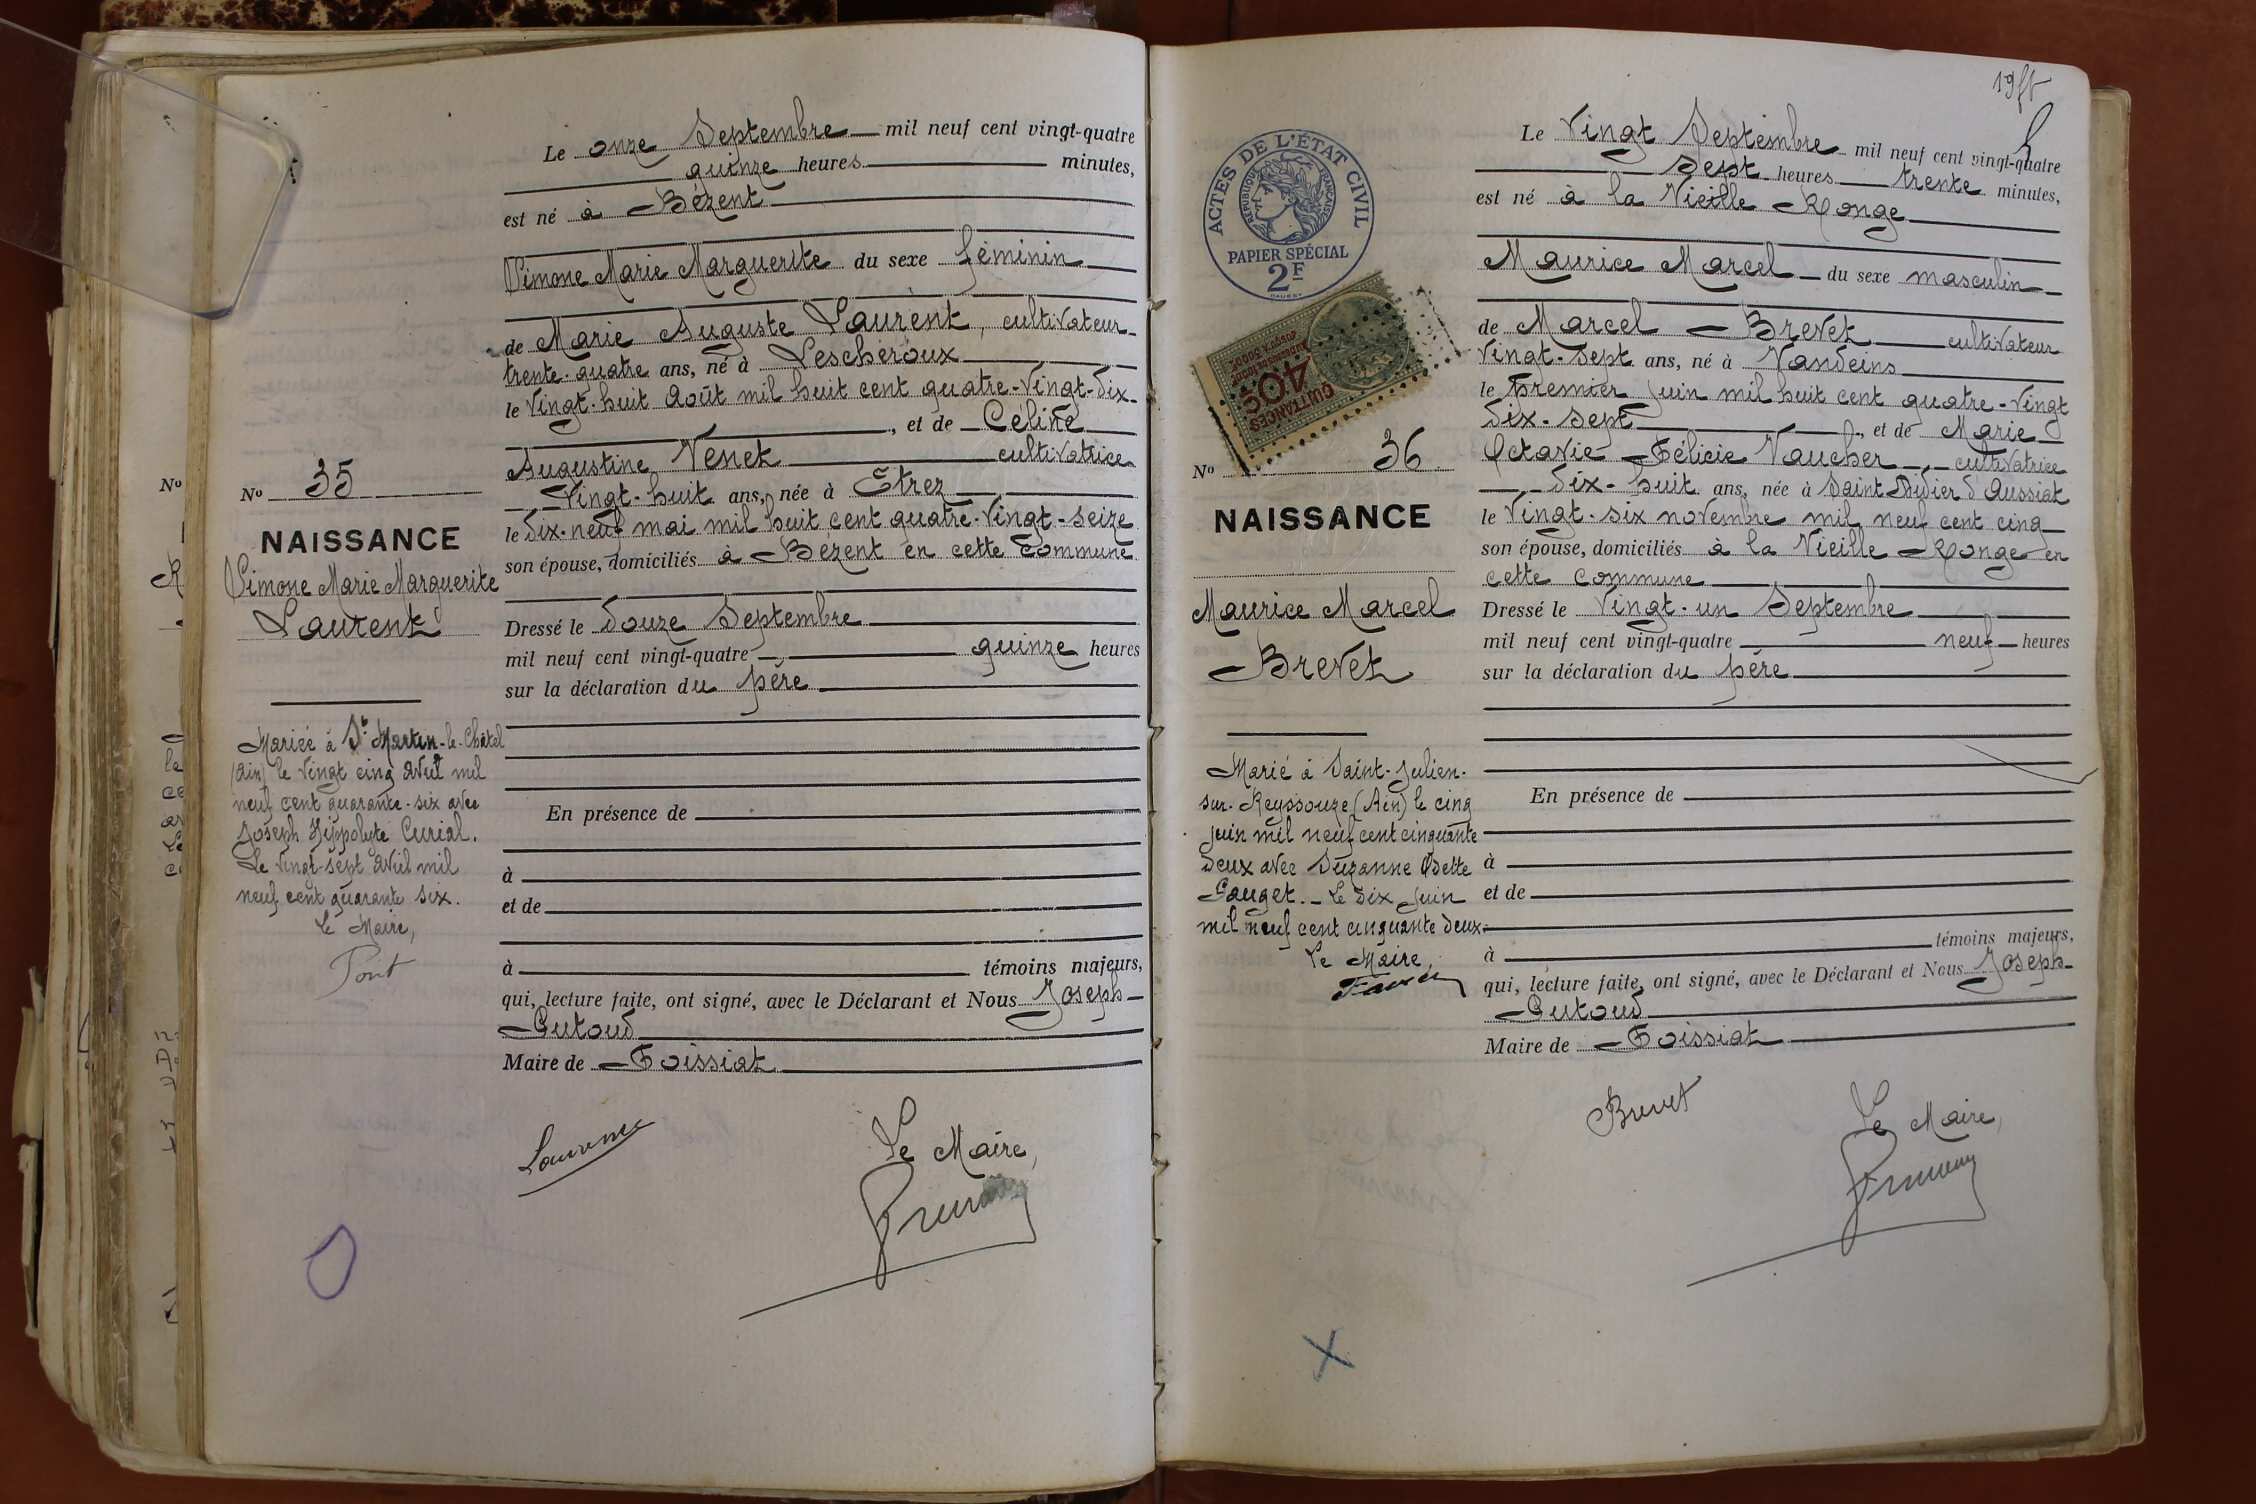 Le onze Septembre mil neuf cent vingt-quatre
quinze heures minutes,
est né à Bézent
Simone Marie Marguerite du sexe féminin
de Marie Auguste Laurent, cultivateur
trente-quatre ans, né à Lescheroux
le vingt-huit Août mil huit cent quatre-vingt-dix
, et de Céline
Augustine Venet cultivatrice
vingt-huit ans, née à Etrez
le dix-neuf mai mil huit cent quatre-vingt-seize
son épouse, domiciliés à Bézent en cette commune
Dressé le douze Septembre
mil neuf cent vingt-quatre quinze heures
sur la déclaration du père
En présence de
à
et de
à témoins majeurs,
qui, lecture faite, ont signé, avec le Déclarant et Nous Joseph
Gutoud
Maire de Foissiat
Laurent
Le Maire,
No
No 35
NAISSANCE
Simone Marie Marguerite
Laurent
Mariée à St Martin-le-Châtel
(Ain) le vingt cinq avril mil
neuf cent quarante-six avec
Joseph Hippolyte Curial.
Le vingt-sept avril mil
neuf cent quarante six.
Le Maire,
Pont
19
Le vingt Septembre mil neuf cent vingt-quatre
sept heures trente minutes,
est né à la Vieille Ronge
Maurice Marcel du sexe masculin
de Marcel Brevet cultivateur
vingt-sept ans, né à Vandeins
le premier juin mil huit cent quatre-vingt
dix-sept, et de Marie
Octavie Félicie Vaucher, cultivatrice
dix-huit ans, née à Saint Didier d'Aussiat
le vingt-six novembre mil neuf cent cinq
son épouse, domiciliés à la Vieille Ronge en
cette commune
Dressé le vingt-un Septembre
mil neuf cent vingt-quatre neuf heures
sur la déclaration du père
En présence de
à
et de
à témoins majeurs,
qui, lecture faite, ont signé, avec le Déclarant et Nous Joseph
Gutoud
Maire de Foissiat
Brevet
Le Maire,
ACTES DE L'ÉTAT CIVIL
RÉPUBLIQUE FRANÇAISE
PAPIER SPÉCIAL
2F
QUITTANCES
40c
No 36
NAISSANCE
Maurice Marcel
Brevet
Marié à Saint-Julien-
sur-Reyssouze (Ain) le cinq
juin mil neuf cent cinquante
deux avec Suzanne Odette
Gauget. Le dix juin
mil neuf cent cinquante deux.
Le Maire,